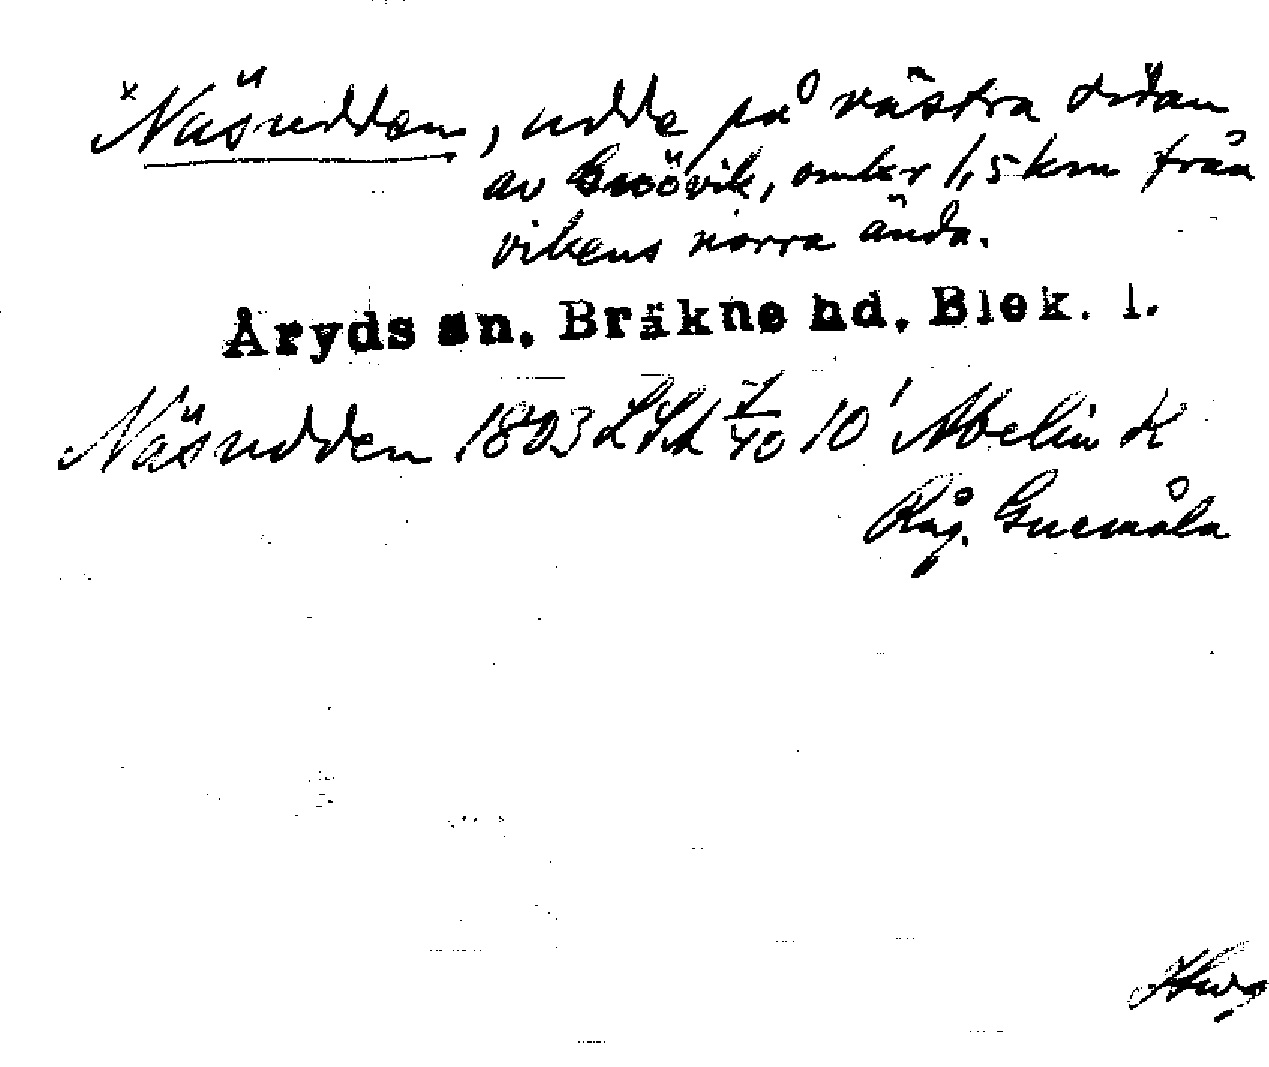 ˣNäsudden, udde på västra sidan
av Gnövik, omkr 1,5 km från
vikens norra ända.
Åryds sn. Bräkne hd. Blek. l.
Näsudden 1803 LSA 10' Abelin K
Råg. Guemåla